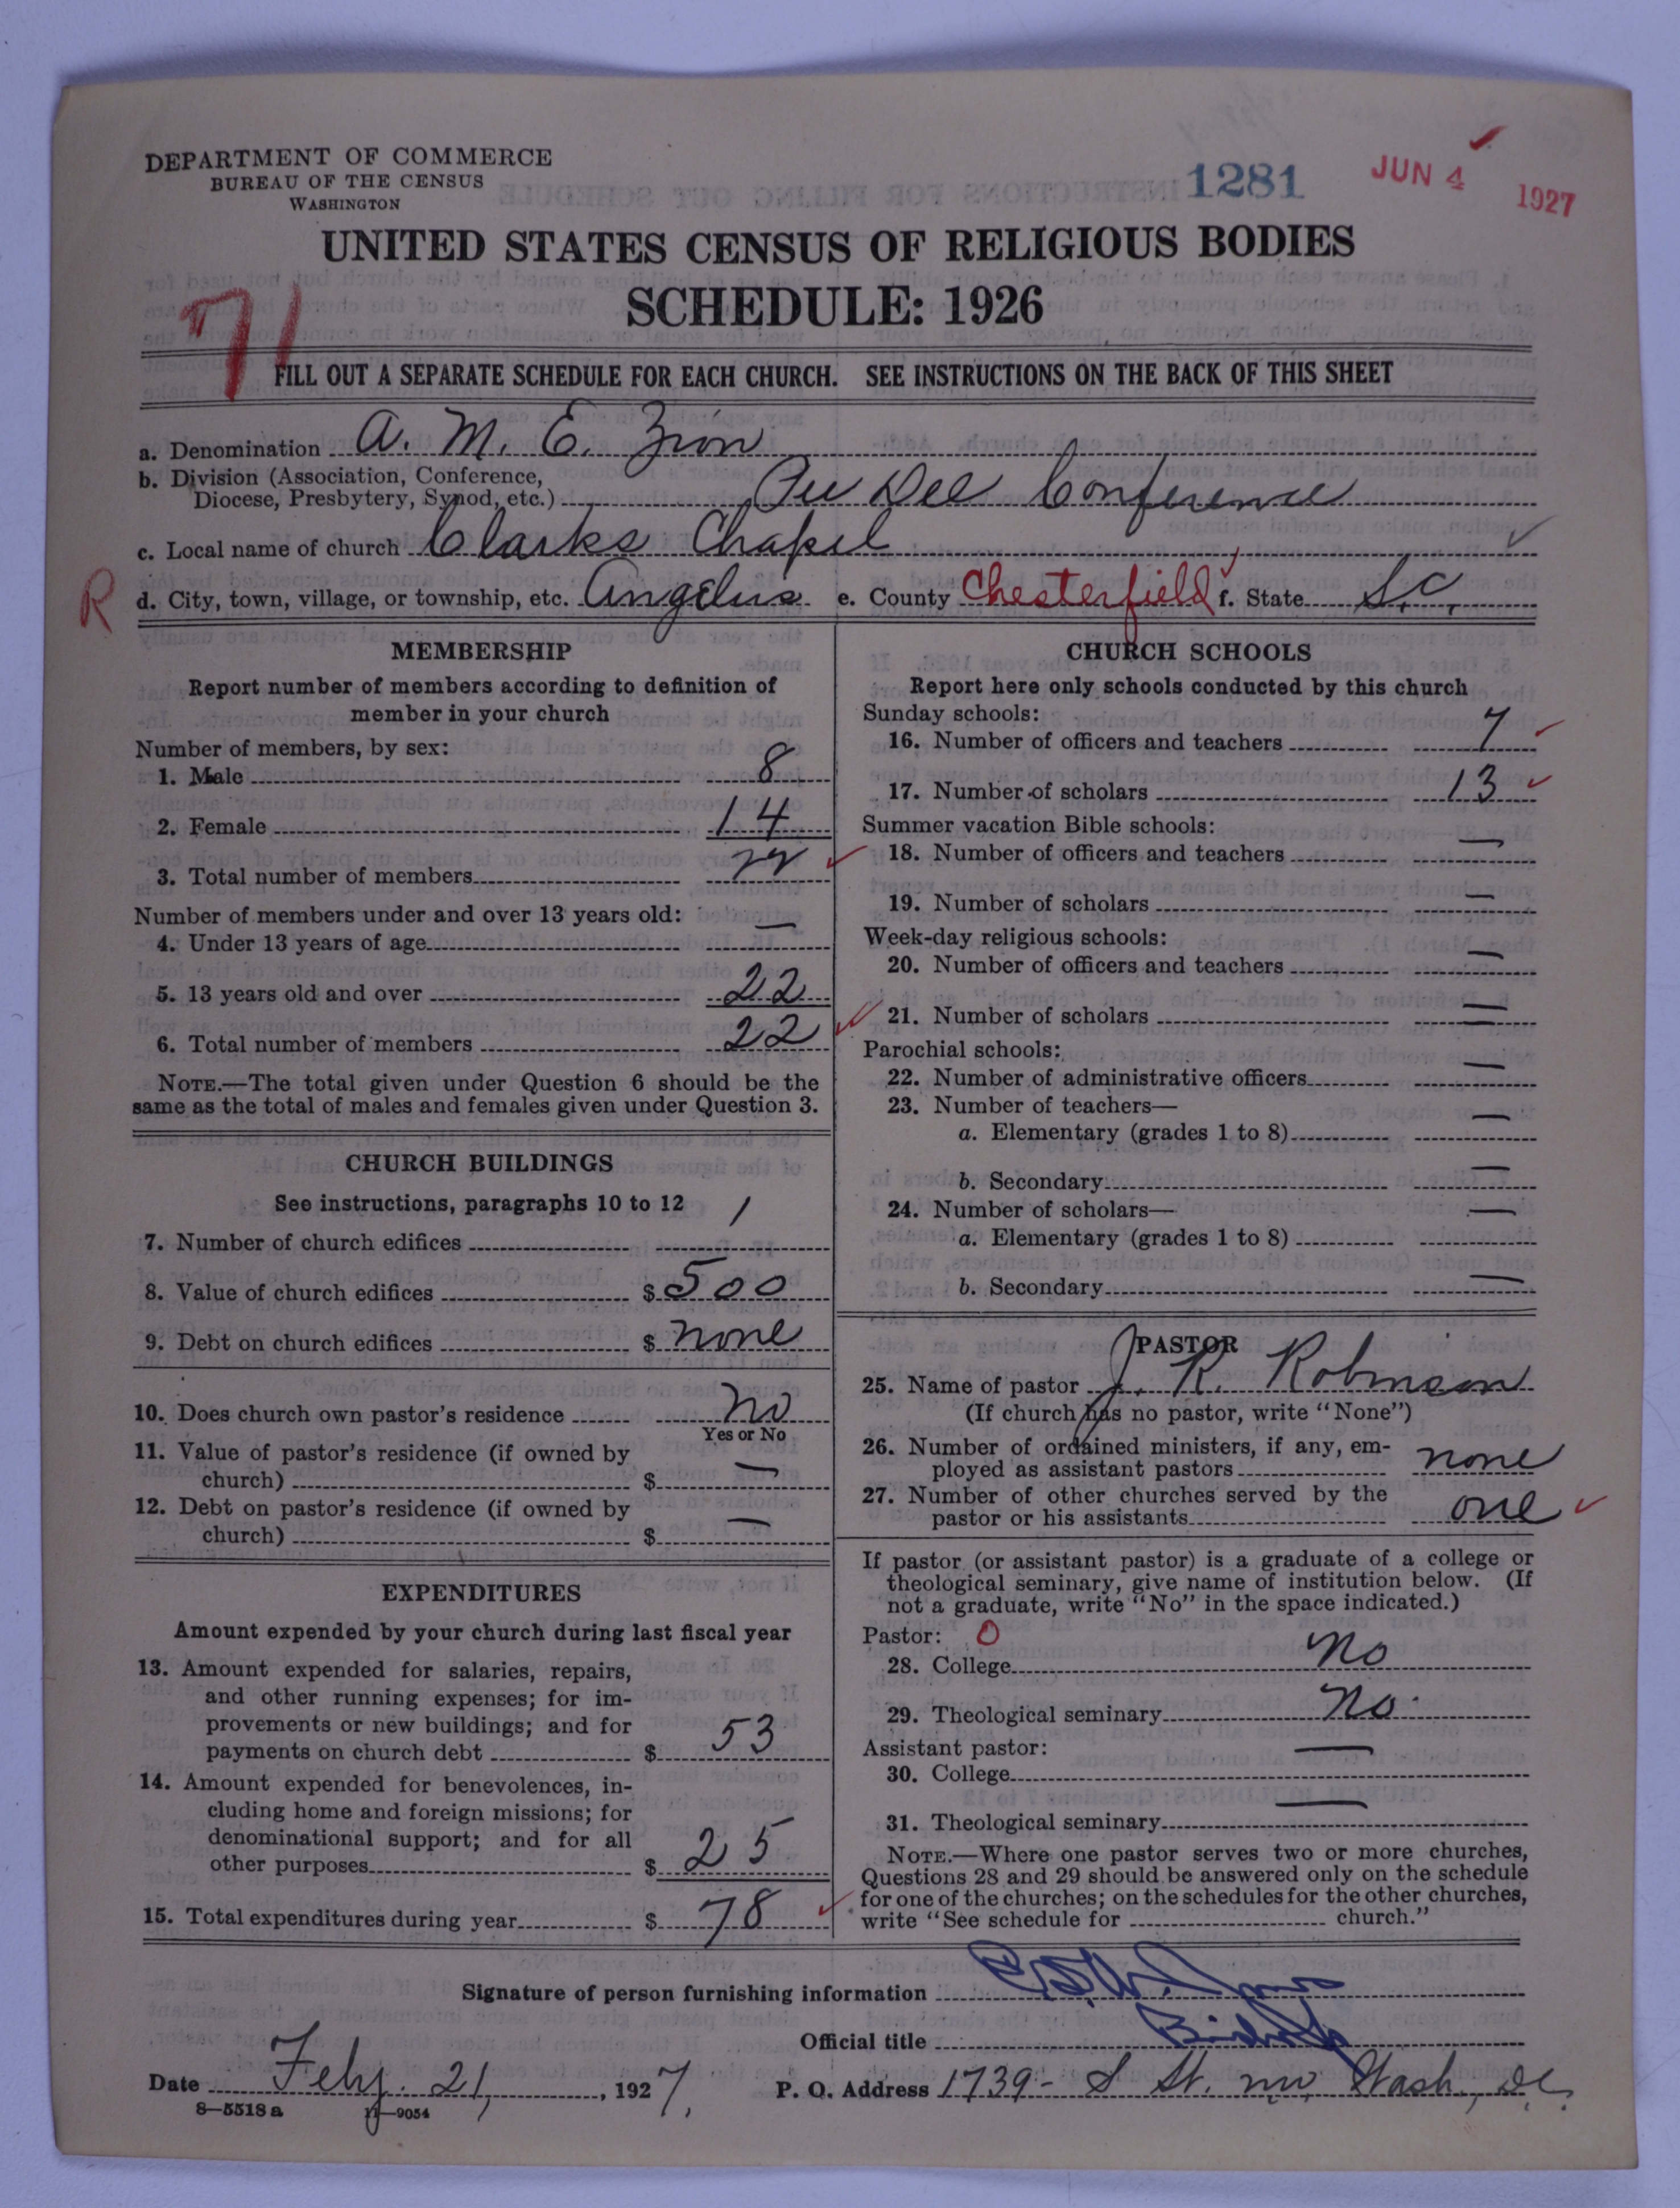 DEPARTMENT OF COMMERCE
BUREAU OF THE CENSUS
WASHINGTON
1281
JUN 4 1927
UNITED STATES CENSUS OF RELIGIOUS BODIES
SCHEDULE: 1926
71
FILL OUT A SEPARATE SCHEDULE FOR EACH CHURCH. SEE INSTRUCTIONS ON THE BACK OF THIS SHEET
a. Denomination A. M. E. Zion
b. Division (Association, Conference,
Diocese, Presbytery, Synod, etc.) Pee Dee Conference
c. Local name of church Clarks Chapel
R
d. City, town, village, or township, etc. Angelus e. County Chesterfield f. State S.C.
MEMBERSHIP
Report number of members according to definition of
member in your church
Number of members, by sex:
1. Male 8
2. Female 14
3. Total number of members 22
Number of members under and over 13 years old:
4. Under 13 years of age —
5. 13 years old and over 22
6. Total number of members 22
NOTE.—The total given under Question 6 should be the
same as the total of males and females given under Question 3.
CHURCH BUILDINGS
See instructions, paragraphs 10 to 12
7. Number of church edifices 1
8. Value of church edifices $ 500
9. Debt on church edifices $ none
10. Does church own pastor's residence no
Yes or No
11. Value of pastor's residence (if owned by
church) $ —
12. Debt on pastor's residence (if owned by
church) $ —
EXPENDITURES
Amount expended by your church during last fiscal year
13. Amount expended for salaries, repairs,
and other running expenses; for im-
provements or new buildings; and for
payments on church debt $ 53
14. Amount expended for benevolences, in-
cluding home and foreign missions; for
denominational support; and for all
other purposes $ 25
15. Total expenditures during year $ 78
CHURCH SCHOOLS
Report here only schools conducted by this church
Sunday schools:
16. Number of officers and teachers 7
17. Number of scholars 13
Summer vacation Bible schools:
18. Number of officers and teachers —
19. Number of scholars —
Week-day religious schools:
20. Number of officers and teachers —
21. Number of scholars —
Parochial schools:
22. Number of administrative officers —
23. Number of teachers—
a. Elementary (grades 1 to 8) —
b. Secondary —
24. Number of scholars—
a. Elementary (grades 1 to 8) —
b. Secondary —
PASTOR
25. Name of pastor J. R. Robinson
(If church has no pastor, write "None")
26. Number of ordained ministers, if any, em-
ployed as assistant pastors none
27. Number of other churches served by the
pastor or his assistants one
If pastor (or assistant pastor) is a graduate of a college or
theological seminary, give name of institution below. (If
not a graduate, write "No" in the space indicated.)
Pastor: O
28. College No
29. Theological seminary No.
Assistant pastor:
30. College —
31. Theological seminary —
NOTE.—Where one pastor serves two or more churches,
Questions 28 and 29 should be answered only on the schedule
for one of the churches; on the schedules for the other churches,
write "See schedule for church."
Signature of person furnishing information
Official title Bishop
Date Feby. 21, 1927.
P. O. Address 1739- S St. nw, Wash, DC.
8—5518a 11—9054